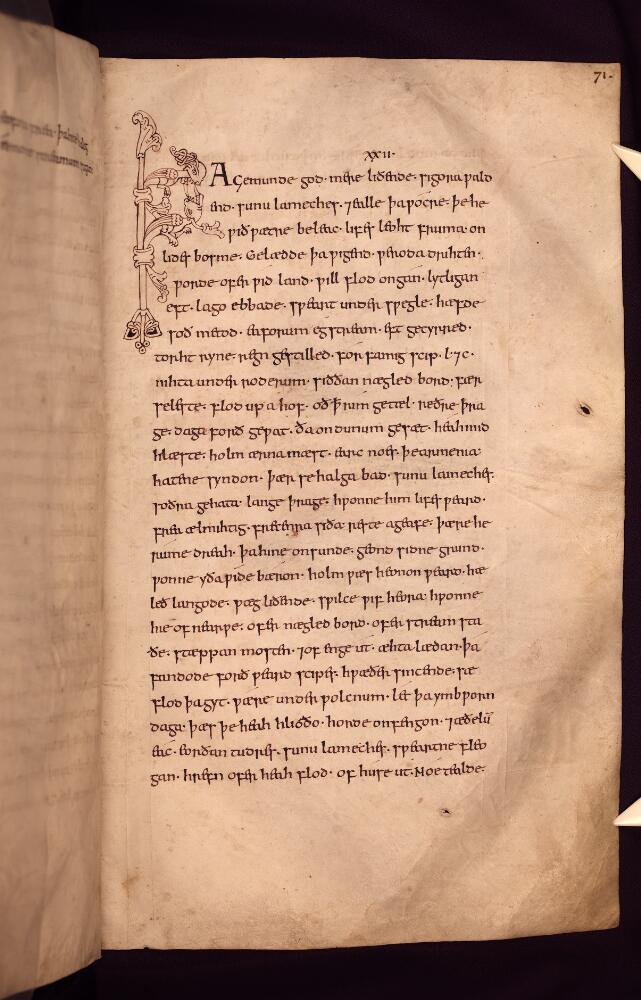 71.
XXII.
ÞA Gemunde god · mere liðende · sigora wald
end · sunu lameches · ⁊ ealle þa wocre · þe he
wið wætre beleac · lifes leoht fruma · on
lides bosme · Gelædde þa wigend · weroda drihten ·
worde ofer wid land · will flod ongan · lytligan
eft · lago ebbade · sweart under swegle · hæfde
soð metod · eaforum egstream · eft gecyrred ·
torht ryne · regn gestilled · for famig scip · l · ⁊ c ·
nihta under roderum · siððan nægled bord · fær
seleste · flod up a hof · oð þ rim getæl · reðre þra
ge · daga forð gewat · ða on dunum gesæt · heah mid
hlæste · holm ærna mæst · earc noes · þe armenia ·
hatene syndon · þær se halga bad · sunu lameches ·
soðra gehata · lange þrage · hwonne him lifes weard ·
frea ælmihtig · frecenra siða · reste ageafe · þære he
rume dreah · þa hine on sunde · geond sidne grund ·
wonne yða wide bæron · holm wæs heonon weard · hæ
leð langode · wæg liðende · swilce wif heora · hwonne
hie of nearwe · ofer nægled bord · ofer stream sta
ðe · stæppan mosten · ⁊ of enge ut · æhta lædan · þa
fandode forð weard scipes · hwæðer sincende · sæ
flod þa gyt · wære under wolcnum · let þa ymb worn
daga · þæs þe heah hlioðo · horde onfengon · ⁊ æðelū
eac · eorðan tudres · sunu lameches · sweartne fleo
gan · hrefn ofer heah flod · of huse ut · Noe tealde ·